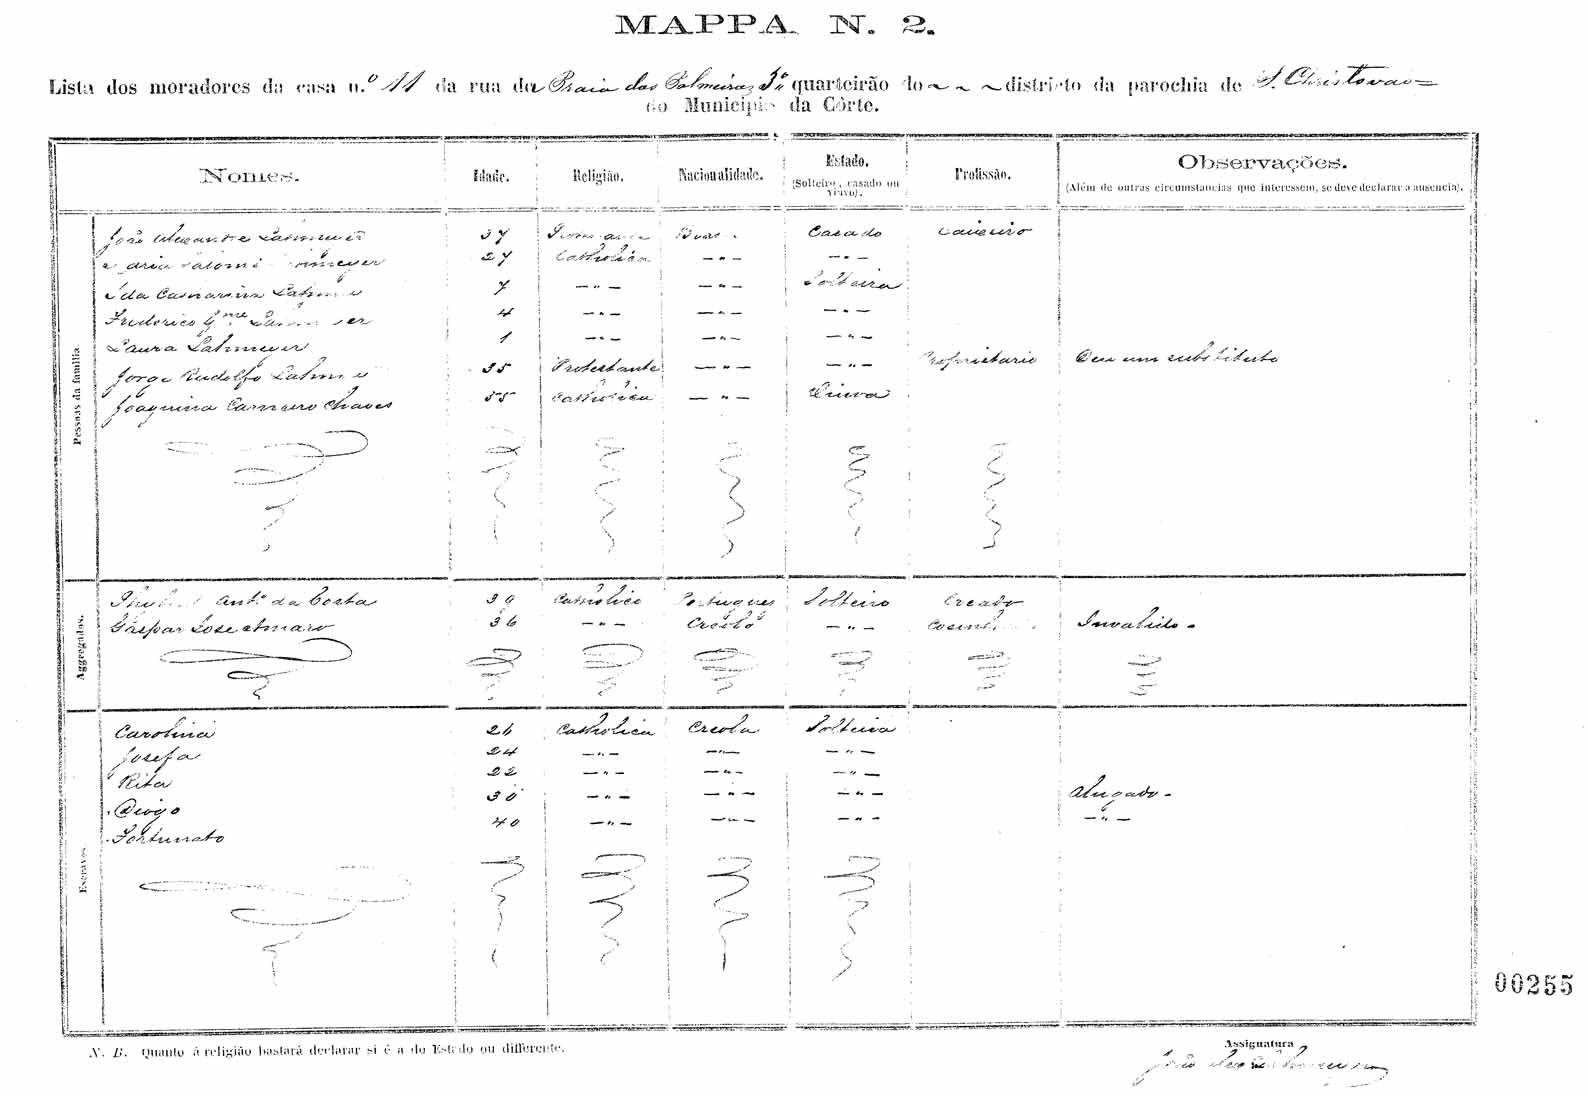 MAPPA N. 2.
Lista dos moradores da casa n.º 11 da rua da Praia das Palmeiras 3º quarteirão do ~ ~ ~ districto da parochia de S. Christovão
do Municipio da Côrte.
Nomes. Idade. Religião. Nacionalidade. Estado. (Solteiro, casado ou viuvo). Profissão. Observações. (Além de outras circumstancias que interessem, se deve declarar a ausencia).
Pessoas da familia
João Alexandre Lahmeyer 37 Casado
Maria Salomé Lahmeyer 27 Catholica — " — — " —
Ida Catharina 7 — " — — " — Solteira
Frederico 4 — " — — " — — " —
Laura Lahmeyer 1 — " — — " — — " —
Jorge Rudolfo 35 Protestante — " — — " — Proprietario Deu um substituto
Joaquina Carneiro Chaves 55 Catholica — " — Viuva
Aggregados.
Ant.º da Costa 39 Catholico Portuguez Solteiro Creado
Gaspar José Amaro 36 — " — Creolo — " — Invalido -
Escravos
Carolina 26 Catholica Creola Solteira
Josefa 24 — " — — " — — " —
Rita 22 — " — — " — — " —
Diogo 30 — " — — " — — " — Alugado -
Fortunato 40 — " — — " — — " — — " —
00255
N. B. Quanto á religião bastará declarar si é a do Estado ou differente.
Assignatura
João